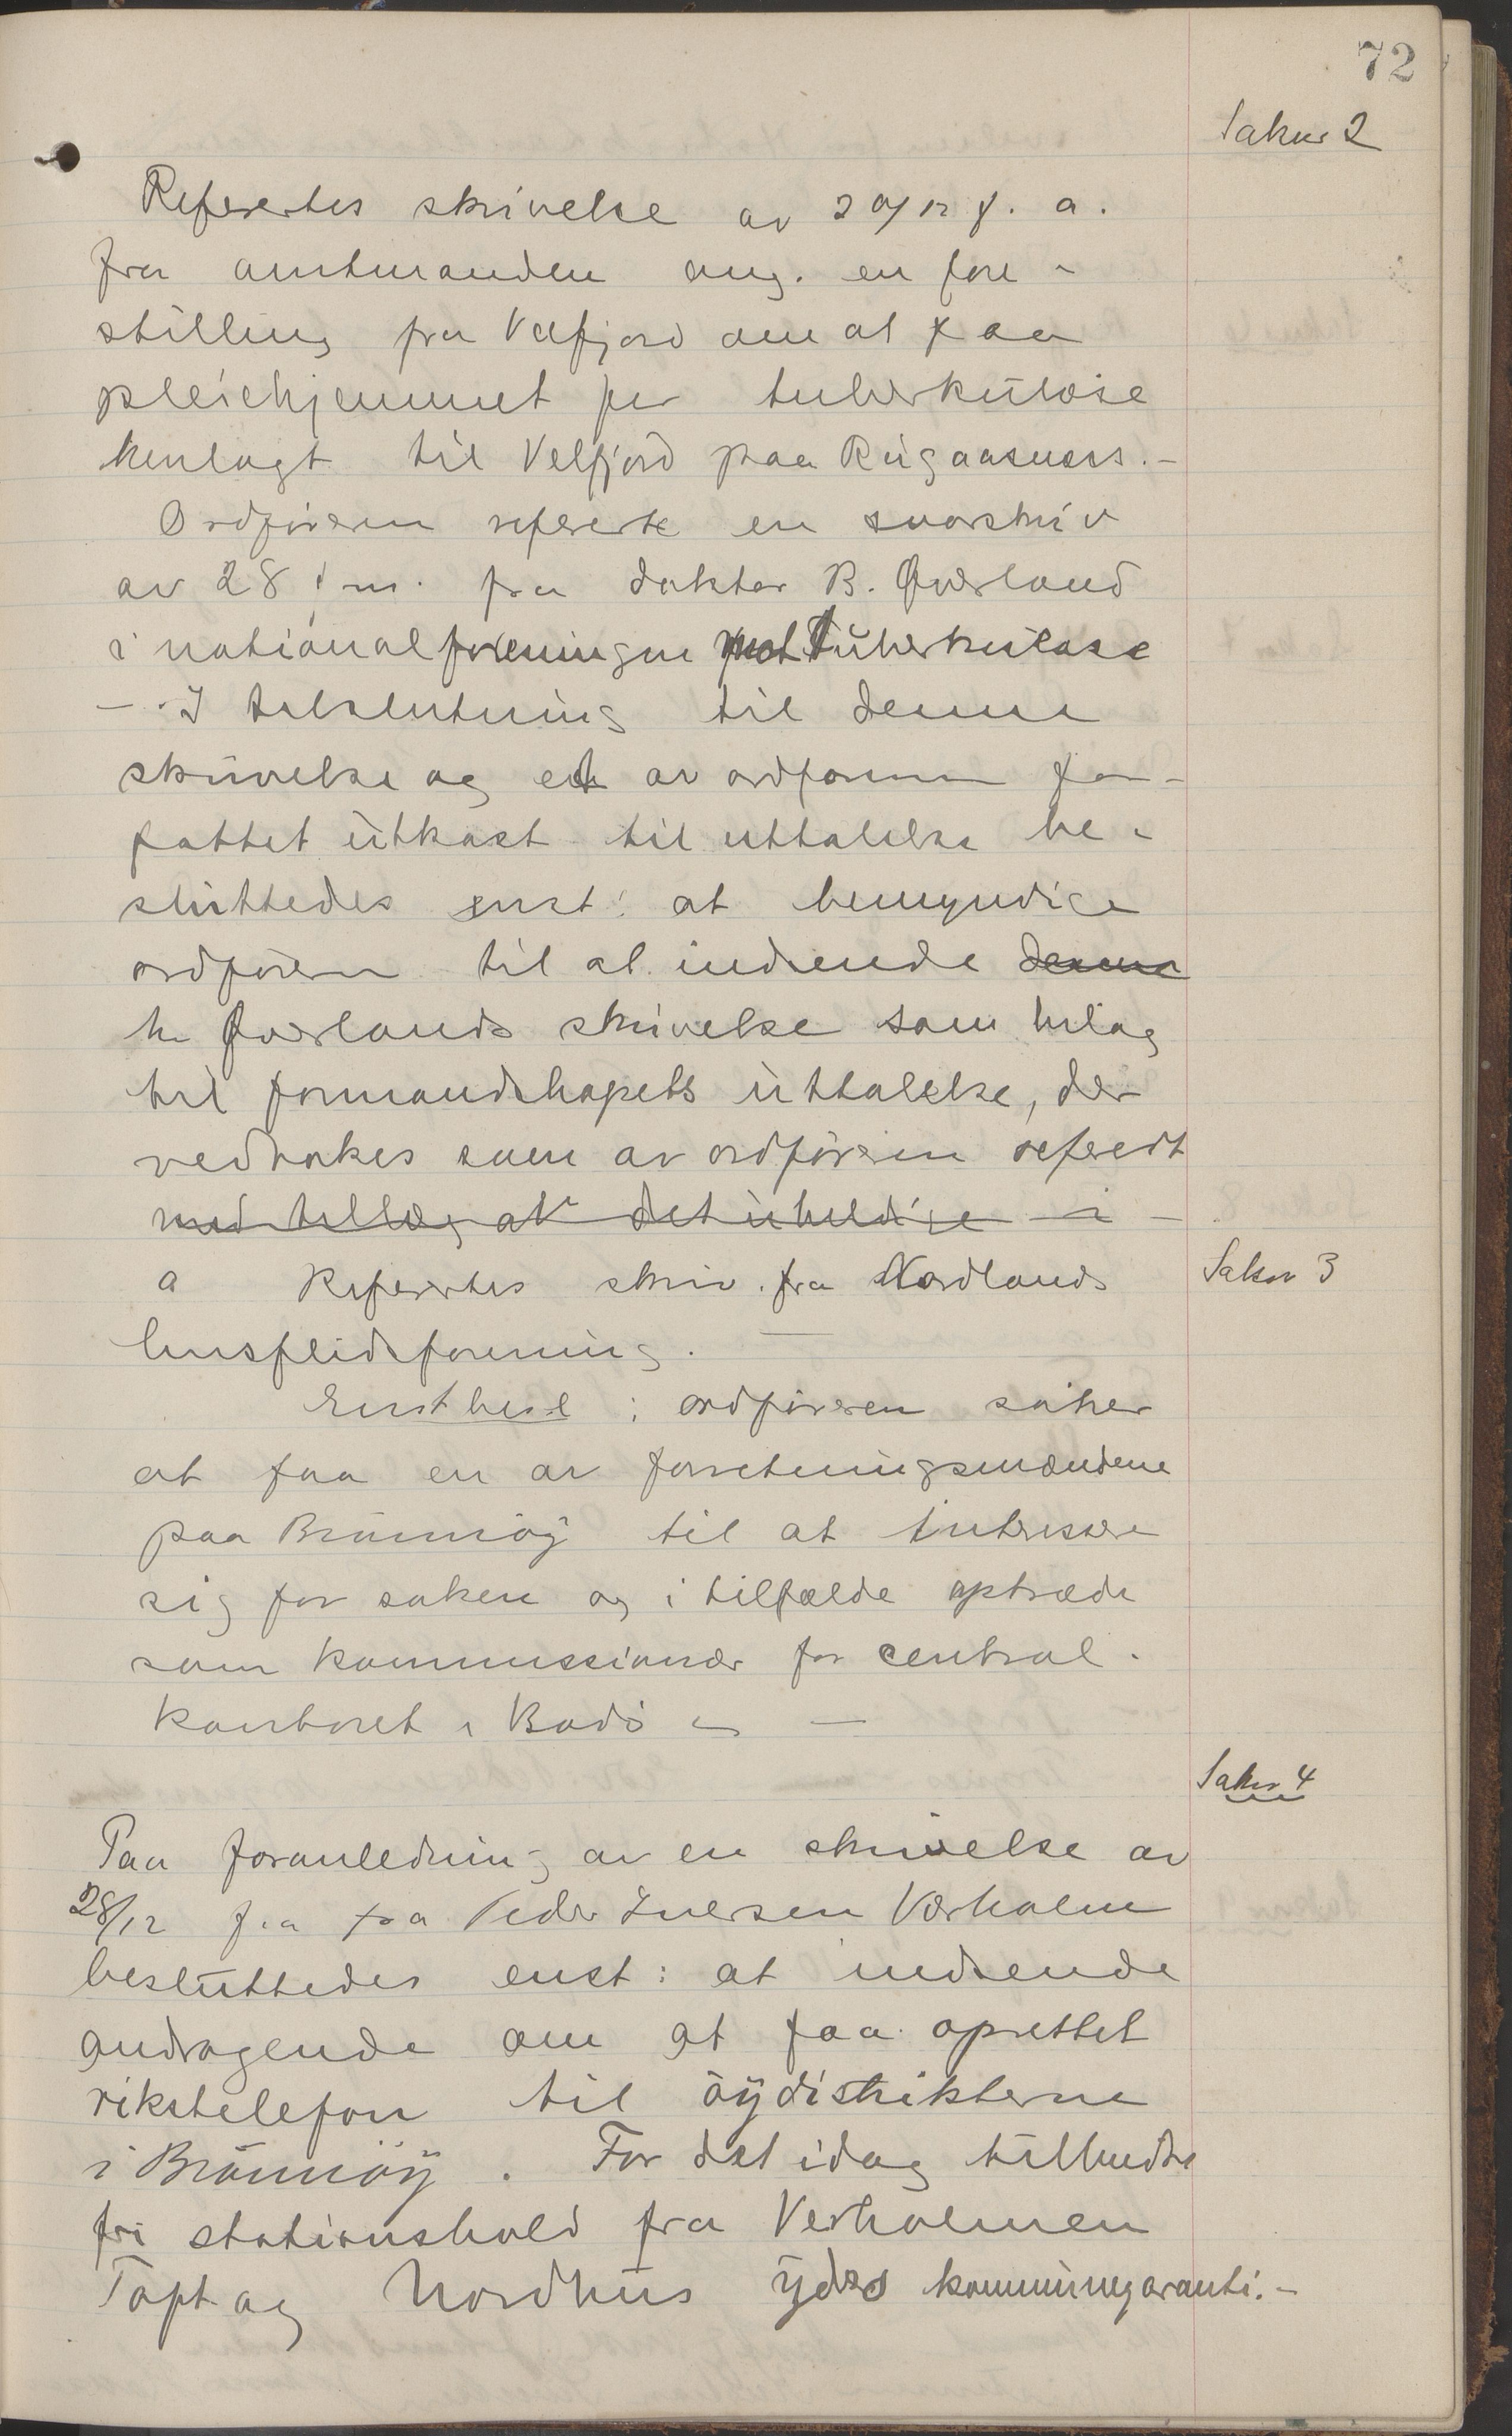 72
Saknr 2
Refereres skrivelse av 20/12 f. a.
fra amtmanden ang. en fore-
stilling fra Velfjord om at faa
pleiehjemmet for tuberkuløse
henlagt til Velfjord paa Rugaasnes.-
Ordføreren refererte en svarskriv
av 28 d. m. fra doktor B. Øverland
i nationalforeningen mot Tuberkulose
- I tilslutning til denne
skrivelse og et av ordføreren for-
fattet utkast til uttalelse be-
sluttedes enst: at bemyndige
ordføreren til at indsende denne
hr Øverlands skrivelse som bilag
til formandskapets uttalelse, der
vedtokes som av ordføreren referert
med tillæg at det uheldige i -
Saknr 3
a Refertes skriv. fra Nordlands
husflidsforening. -
Enst besl : ordføreren søker
at faa en av forretningsmændene
paa Brønnøy til at interessere
sig for saken og i tilfælde optræde
som kommissionær for central-
kontoret i Bodø -
Saknr 4
Paa foranledning av en skrivelse av
28/12 fra fra Peder Iversen Værholm
besluttedes enst: at indsende
andragende om at faa oprettet
rikstelefon til øydistrikterne
i Brønnøy. For det idag tilbudte
fri stationshold fra Verholmen
Toft og Nordhus ydes kommunegaranti.-